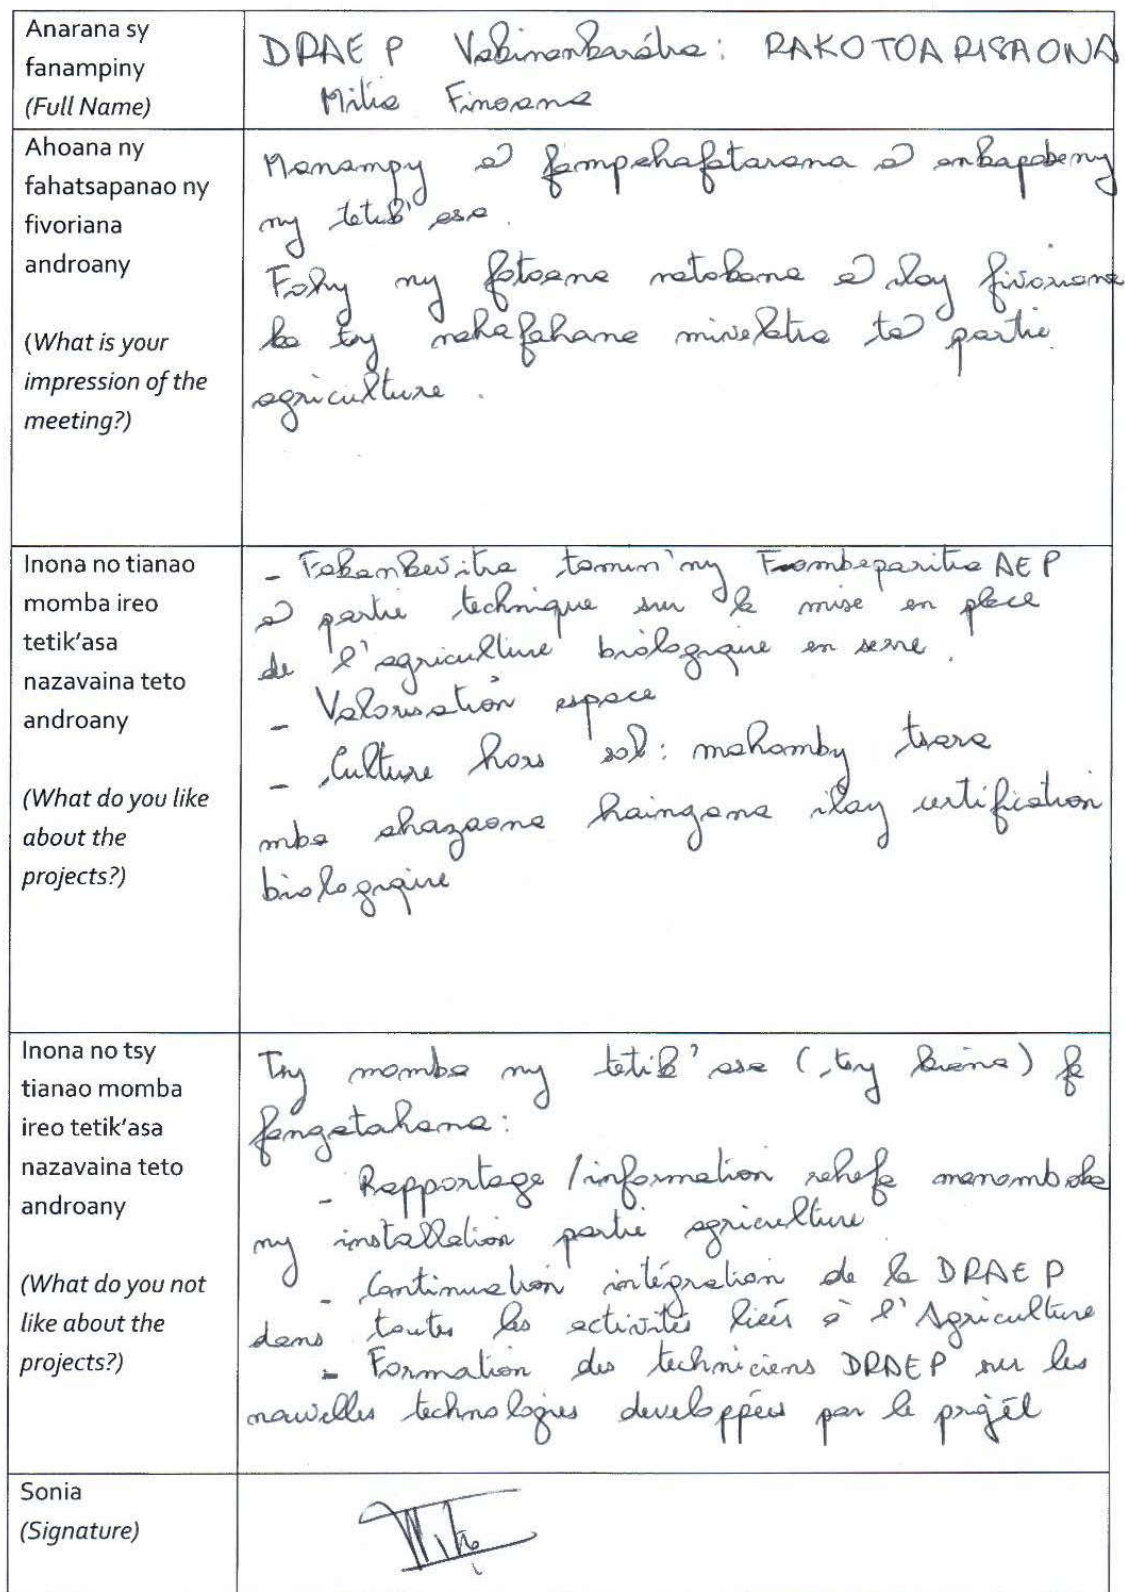 Anarana sy
fanampiny
(Full Name)
DRAEP Vakinankaratra: RAKOTOARISAONA
Mitia Finoana
Ahoana ny
fahatsapanao ny
fivoriana
androany
(What is your
impression of the
meeting?)
Manampy @ fampahafatarana @ ankapobeny
ny tetik'asa.
Fohy ny fotoana natokana @ ilay fivoriana
ka tsy nahafahana mivelatra ta@ partie
agriculture.
Inona no tianao
momba ireo
tetik'asa
nazavaina teto
androany
(What do you like
about the
projects?)
- Fakan-kevitra tamin'ny Fiombeparitra AEP
@ partie technique sur la mise en place
de l'agriculture biologique en serre.
- Valorisation espace
- Culture hors sol: mahomby tsara
mba ahazaona haingana ilay certification
biologique
Inona no tsy
tianao momba
ireo tetik'asa
nazavaina teto
androany
(What do you not
like about the
projects?)
Tsy momba ny tetik'asa (tsy kiana) fa
fangatahana:
- Rapportage/information rehefa manomboka
ny installation partie agriculture
- Continuation intégration de la DRAEP
dans toutes les activités liées à l'Agriculture
- Formation des techniciens DRAEP sur les
nouvelles technologies developpées par le projet
Sonia
(Signature)